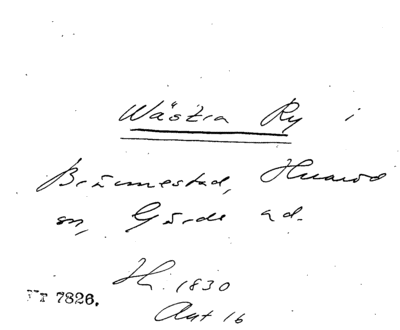 Wästra Ry i
Brännestad, Huaröd
sn, Gärds ad.
Hs. 1830
Aut 16
Nr 7826.